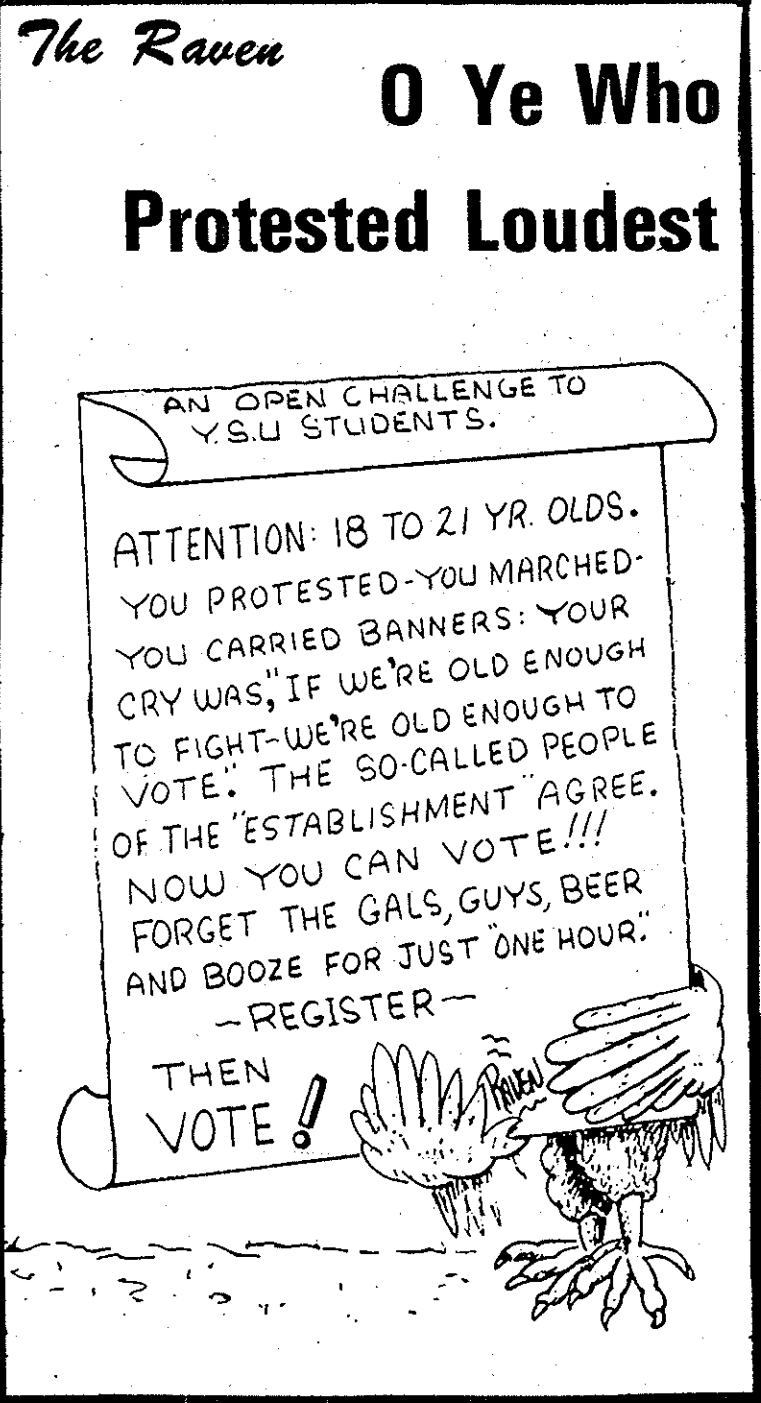 The Raven
O Ye Who
Protested Loudest
AN OPEN CHALLENGE TO
Y.S.U STUDENTS.
ATTENTION: 18 TO 21 YR. OLDS.
YOU PROTESTED-YOU MARCHED-
YOU CARRIED BANNERS: YOUR
CRY WAS, "IF WE'RE OLD ENOUGH
TO FIGHT-WE'RE OLD ENOUGH TO
VOTE". THE SO-CALLED PEOPLE
OF THE "ESTABLISHMENT" AGREE.
NOW YOU CAN VOTE!!!
FORGET THE GALS, GUYS, BEER
AND BOOZE FOR JUST "ONE HOUR".
-REGISTER-
THEN
VOTE!
RAVEN